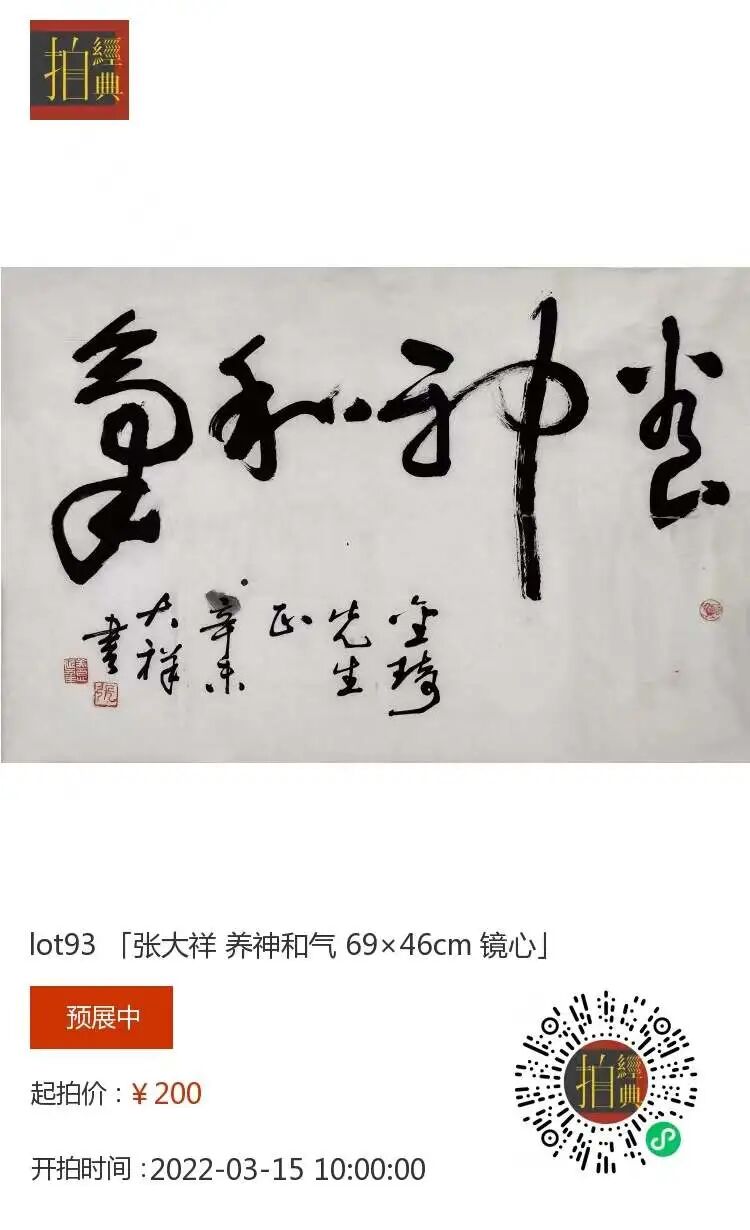 經典
拍
養神和氣
金琦
先生
正
辛未
大祥
書
lot93 「张大祥 养神和气 69×46cm 镜心」
预展中
起拍价：¥200
开拍时间：2022-03-15 10:00:00
經典
拍